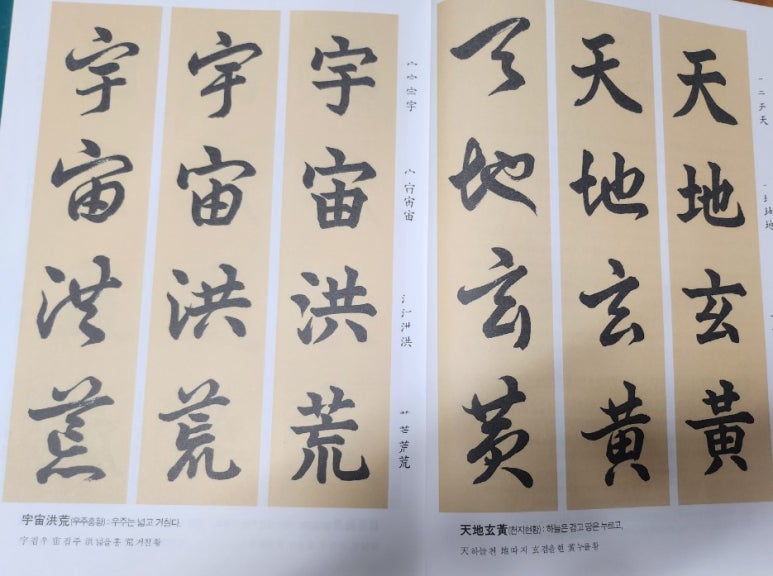 天地玄黃
天地玄黄
天地玄黄
天
地
天地玄黃(천지현황) : 하늘은 검고 땅은 누르고,
天 하늘 천 地 따 지 玄 검을 현 黃 누를 황
宇宙洪荒
宇宙洪荒
宇宙洪荒
宇
宙
洪
荒
宇宙洪荒(우주홍황) : 우주는 넓고 거칠다.
宇 집 우 宙 집 주 洪 넓을 홍 荒 거친 황